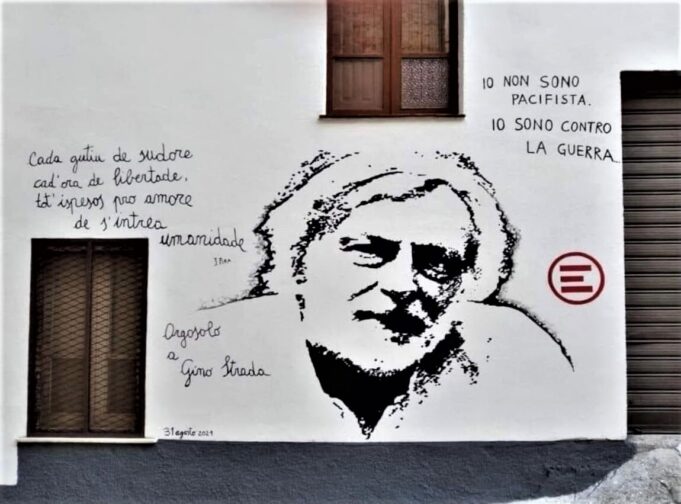 Cada gutiu de sudore
cad'ora de libertade,
tot'ispesos pro amore
de s'intrea
umanidade
Orgosolo
a
Gino Strada
31 agosto 2021
IO NON SONO
PACIFISTA.
IO SONO CONTRO
LA GUERRA...
E